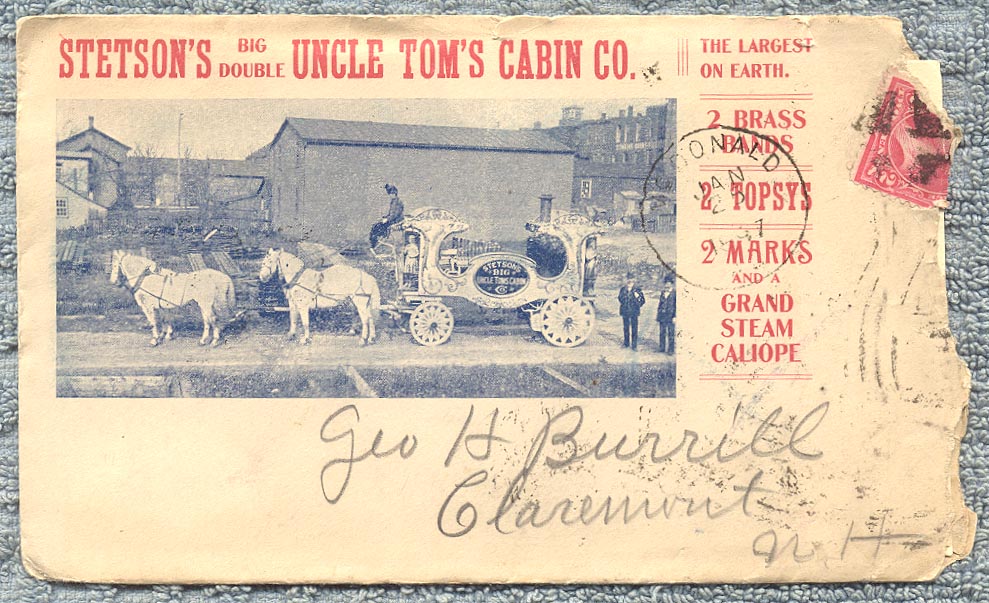 STETSON'S BIG DOUBLE UNCLE TOM'S CABIN CO.
THE LARGEST
ON EARTH.
2 BRASS
BANDS
2 TOPSYS
2 MARKS
AND A
GRAND
STEAM
CALIOPE
STETSON'S
BIG
UNCLE TOM'S CABIN
CO
DONALD
JAN
7
Geo H Burrill
Claremont
N.H.